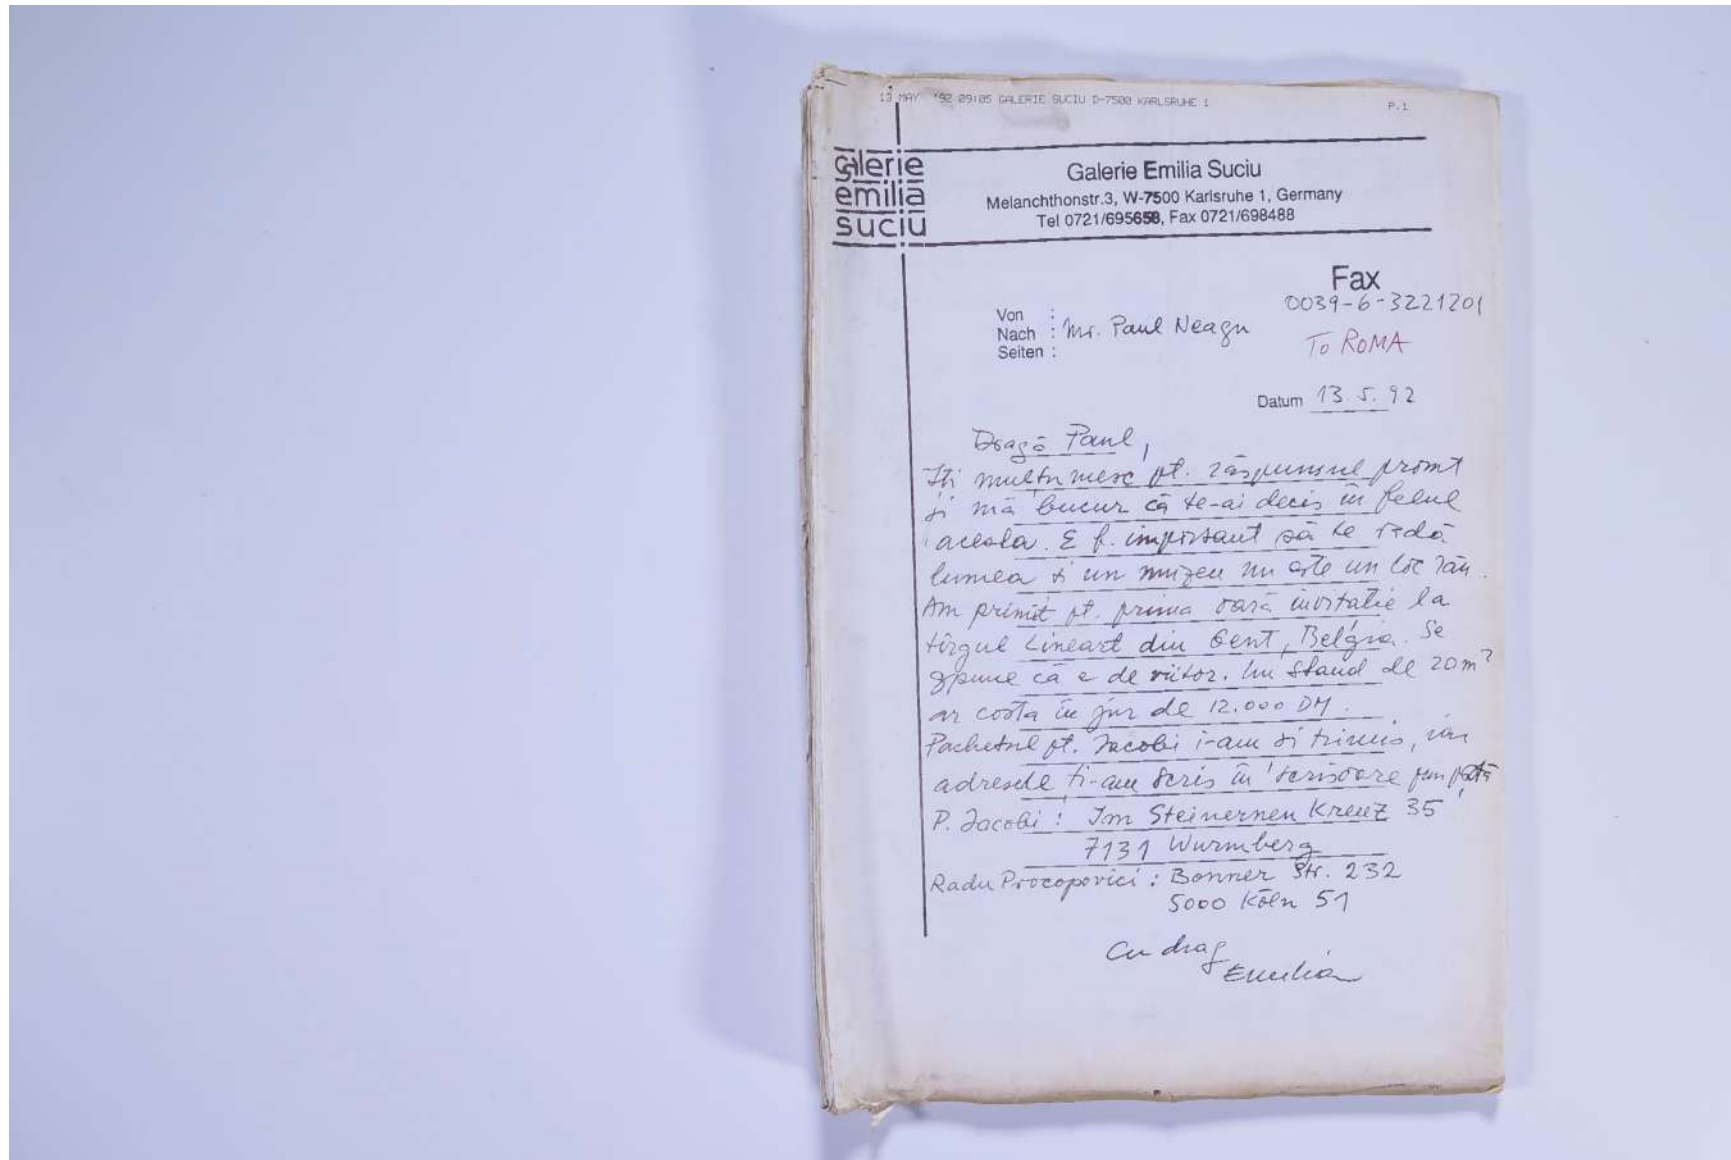 13 MAY '92 09:05 GALERIE SUCIU D-7500 KARLSRUHE 1 P.1
galerie
emilia
suciu
Galerie Emilia Suciu
Melanchthonstr.3, W-7500 Karlsruhe 1, Germany
Tel 0721/695658, Fax 0721/698488
Fax
0039-6-3221201
Von :
Nach : Mr. Paul Neagu
Seiten :
To ROMA
Datum 13.5.92
Dragă Paul,
Iti multumesc pt. răspunsul promt
și mă bucur că te-ai decis în felul
acesta. E f. important să te vadă
lumea și un muzeu nu este un loc rău.
Am primit pt. prima oară invitatie la
tîrgul Lineart din Gent, Belgia. Se
spune că e de viitor. Un stand de 20 m²
ar costa în jur de 12.000 DM.
Pachetul pt. Jacobi i-am și trimis, iar
adresele ți-am scris în scrisoare
P. Jacobi : Im Steinernen Kreuz 35
7131 Wurmberg
Radu Procopovici : Bonner Str. 232
5000 Köln 51
Cu drag
Emilia